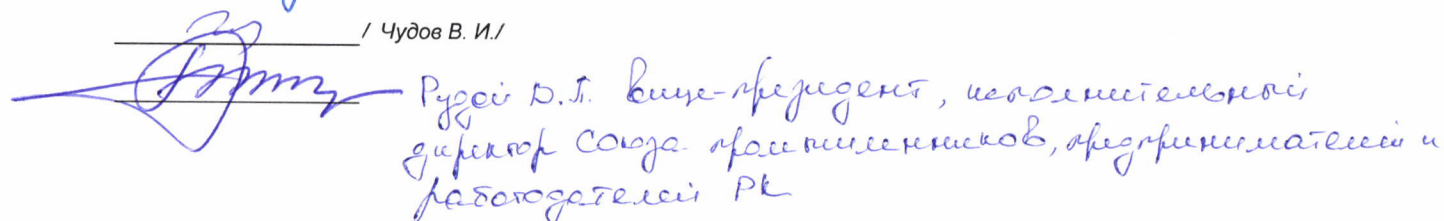 / Чудов В. И./
Рудой D.Г. вице-президент, исполнительный
директор Союза промышленников, предпринимателей и
работодателей РК